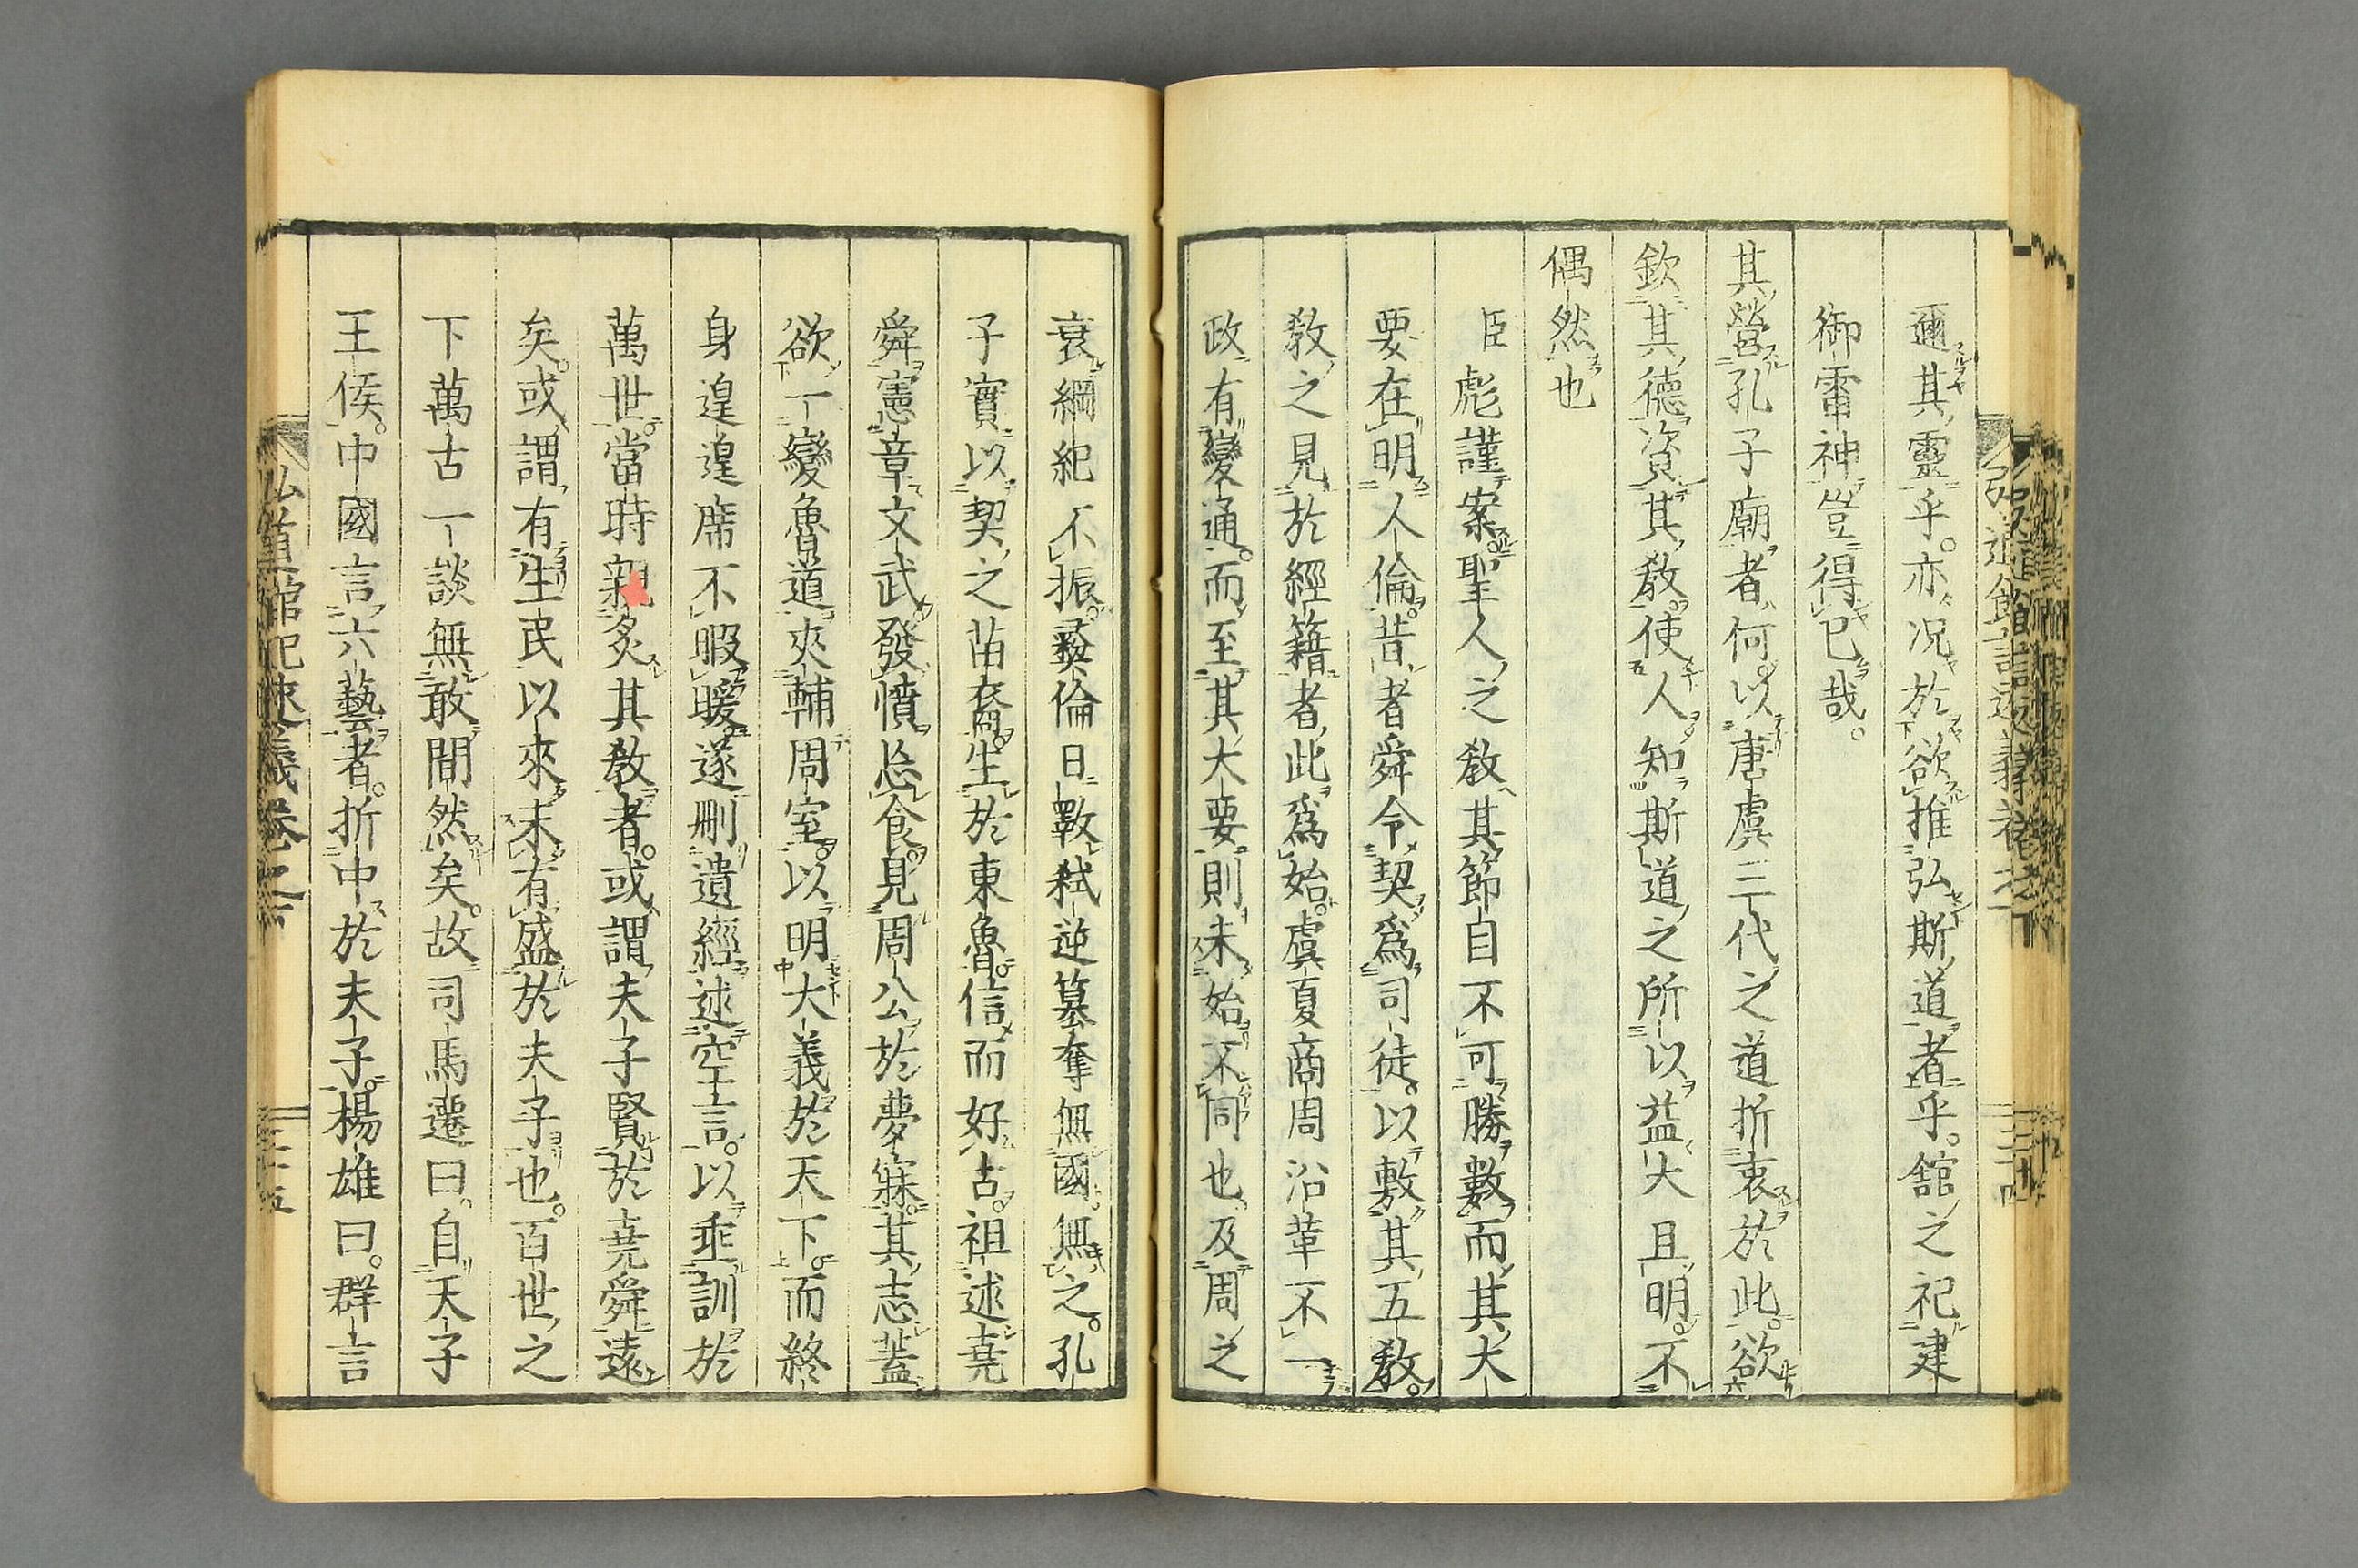 邇其靈乎。亦况於欲推弘斯道者乎。舘之祀建
御雷神豈得已哉。
其營孔子廟者何。以唐虞三代之道折衷於此。欲
欽其德資其敎。使人知斯道之所以益大且明。不
偶然也
臣彪謹案。聖人之敎其節目不可勝數而其大
要在明人倫。昔者舜令契爲司徒。以敷其五敎。
敎之見於經籍者此爲始。虞夏商周沿革不一
政有變通。而至其大要則未始不同也。及周之
衰綱紀不振。彜倫日斁弑逆簒奪無國無之。孔
子實以契之苗裔。生於東魯。信而好古。祖述堯
舜憲章文武。發憤忘食。見周公於夢寐。其志蓋
欲一變魯道夾輔周室。以明大義於天下。而終
身遑遑席不暇暖。遂刪遺經述空言。以垂訓於
萬世。當時親炙其敎者。或謂夫子賢於堯舜遠
矣。或謂有生民以來未有盛於夫子也。百世之
下萬古一談無敢間然矣。故司馬遷曰。自天子
王侯。中國言六藝者。折中於夫子。楊雄曰。群言
弘道館記述義卷之下
二十五